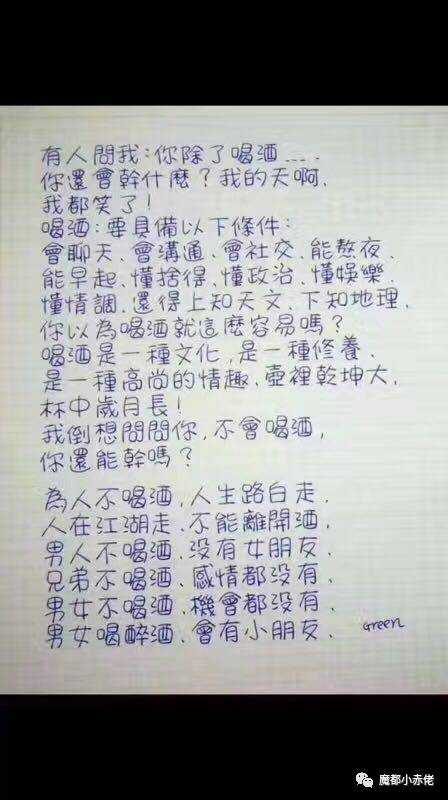 有人問我:你除了喝酒....
你還會幹什麼?我的天啊.
我都笑了!
喝酒:要具備以下條件:
會聊天、會溝通、會社交、能熬夜、
能早起、懂捨得、懂政治、懂娛樂、
懂情調、還得上知天文、下知地理、
你以為喝酒就這麼容易嗎?
喝酒是一種文化,是一種修養、
是一種高尚的情趣、壺裡乾坤大,
杯中歲月長!
我倒想問問你,不會喝酒,
你還能幹嗎?
為人不喝酒,人生路白走、
人在江湖走、不能離開酒、
男人不喝酒、沒有女朋友、
兄弟不喝酒、感情都沒有、
男女不喝酒、機會都沒有、
男女喝醉酒、會有小朋友、 Green
魔都小赤佬